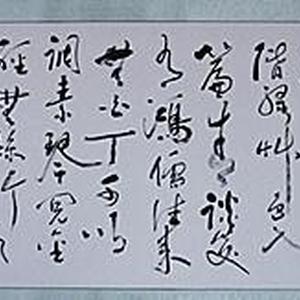 階緑艸色入
簾青談笑
有鴻儒往来
無白丁可以
調素琴閱金
經無絲竹之